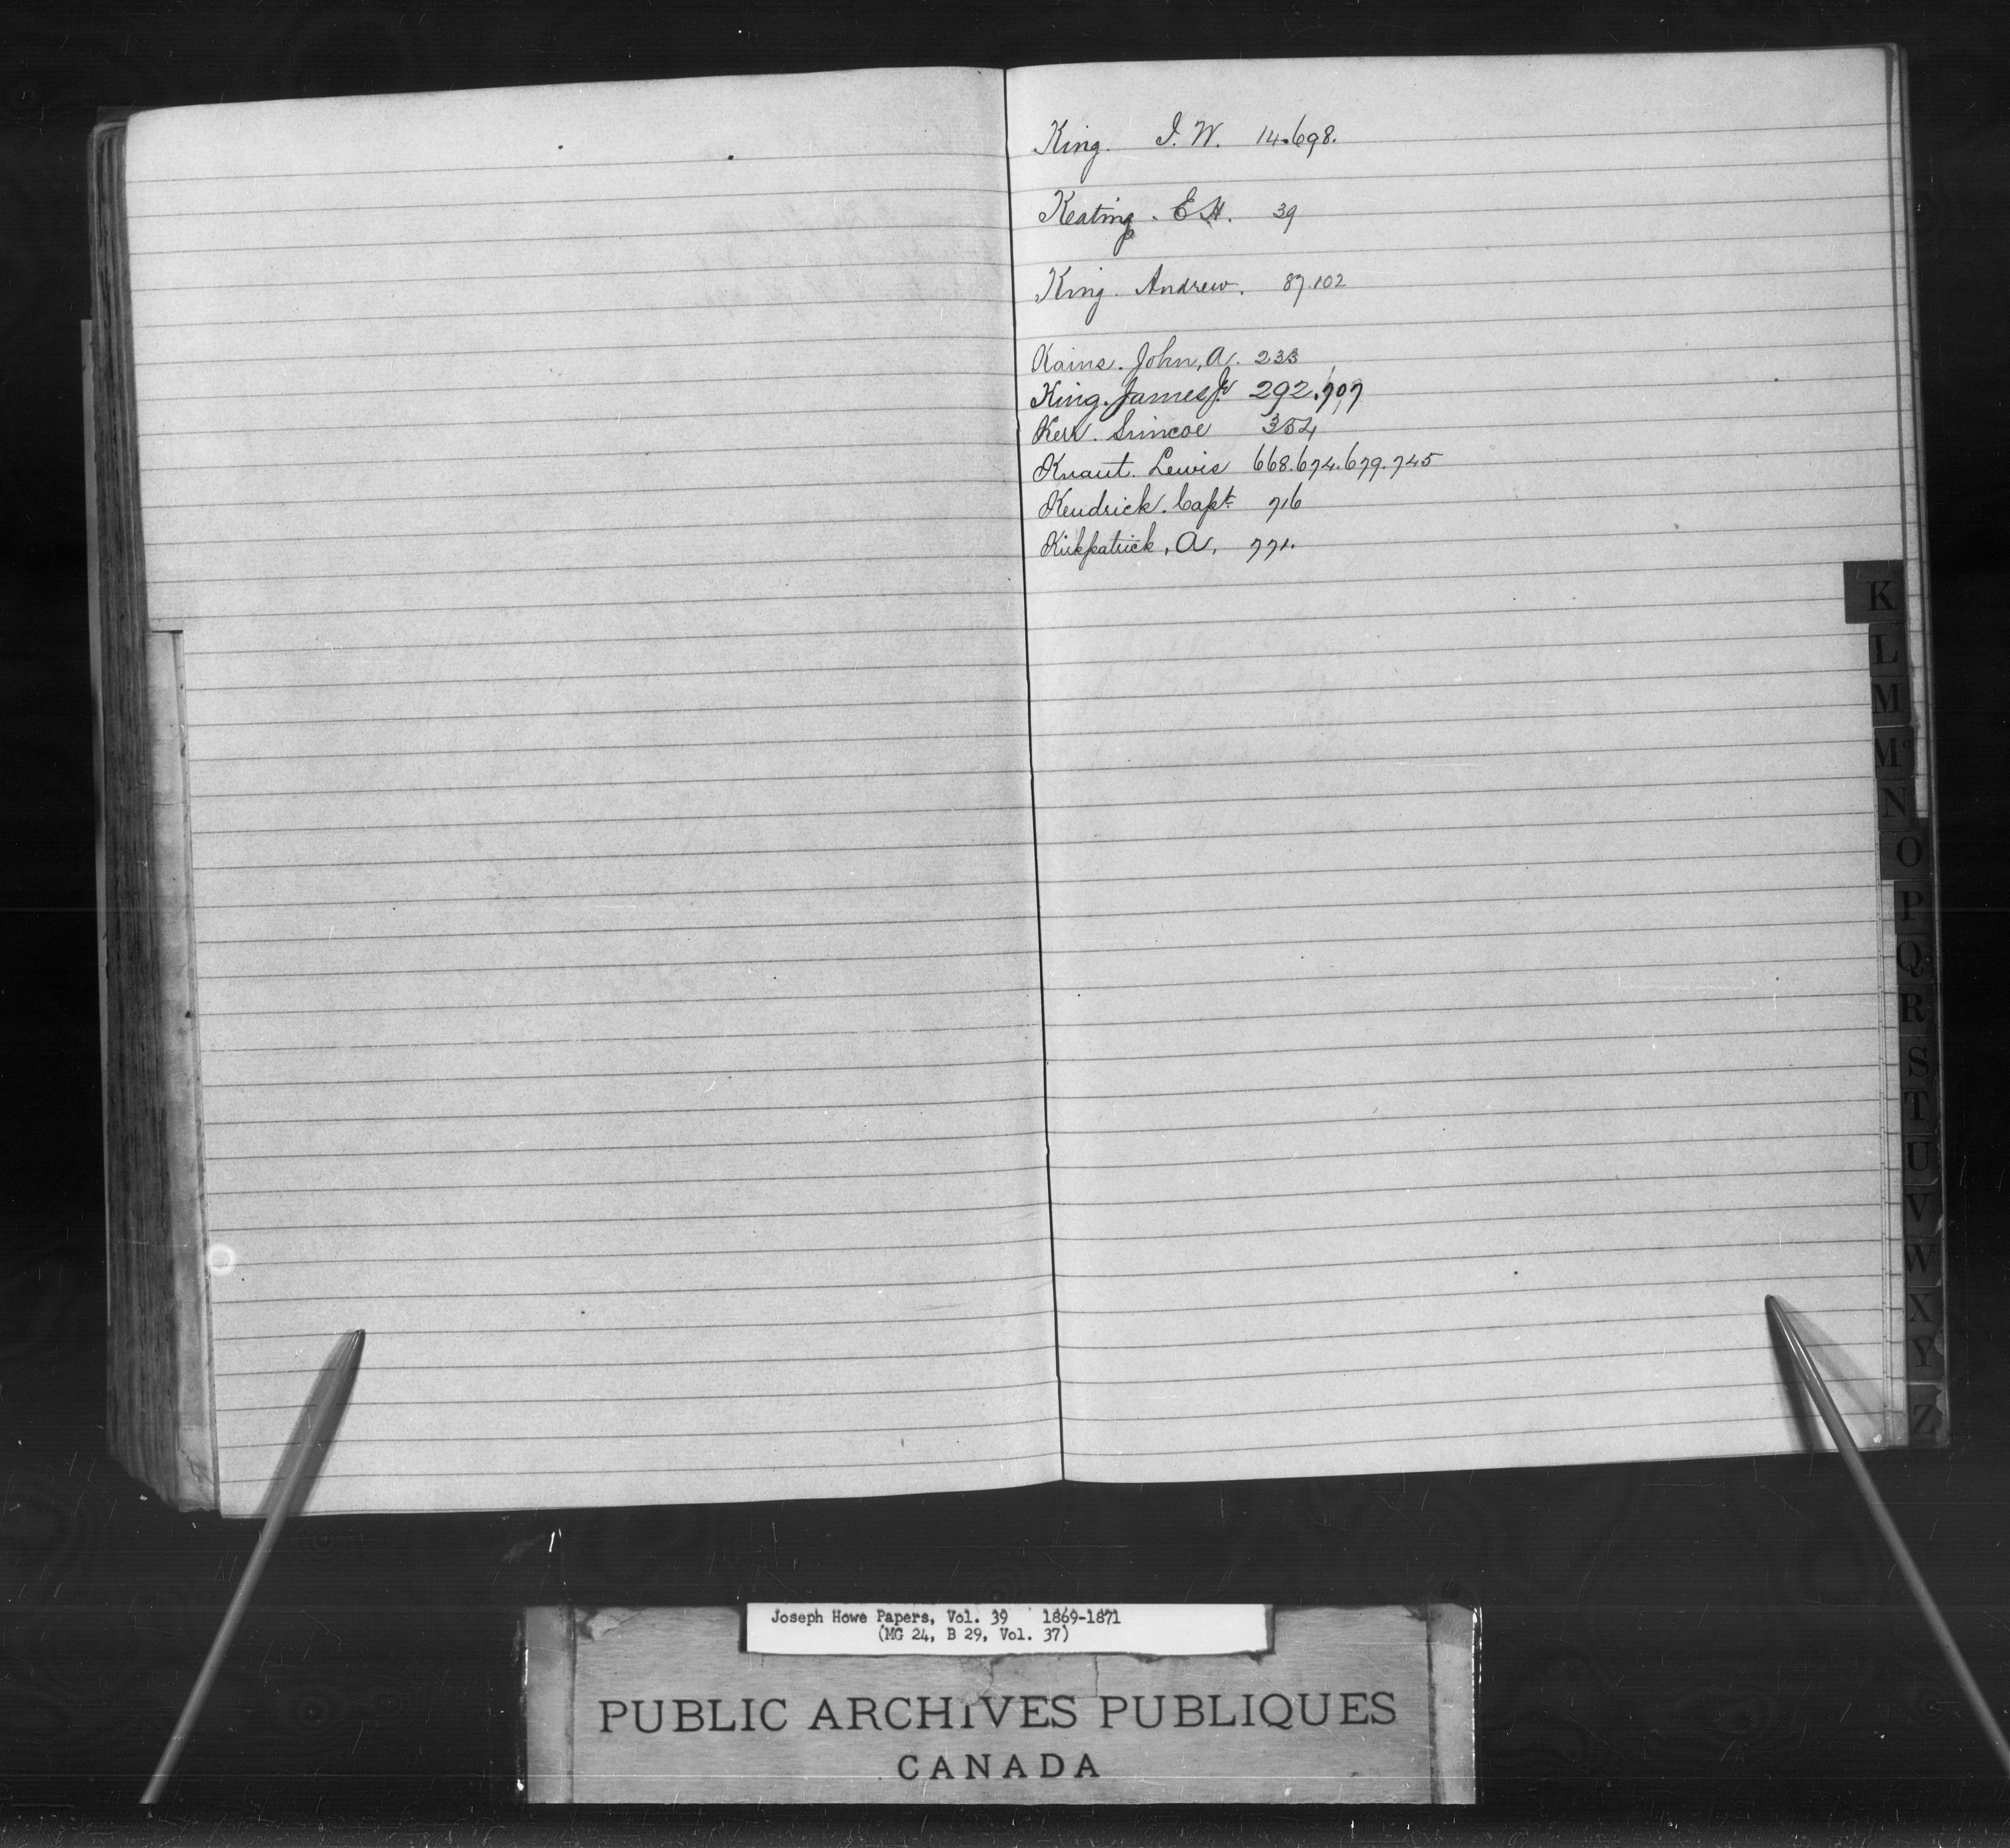 King. I. W. 14.698.
Keating. E H. 39
King. Andrew. 87.102
Kains. John, A. 233
King. James Jr 292.707
Kerr. Simcoe 354
Knaut. Lewis 668.674.679.745
Kendrick. Capt. 716
Kirkpatrick, A, 771.
K
L
M
Mc
N
O
P
Q
R
S
T
U
V
W
X
Y
Z
Joseph Howe Papers, Vol. 39 1869-1871
(MG 24, B 29, Vol. 37)
PUBLIC ARCHIVES PUBLIQUES
CANADA